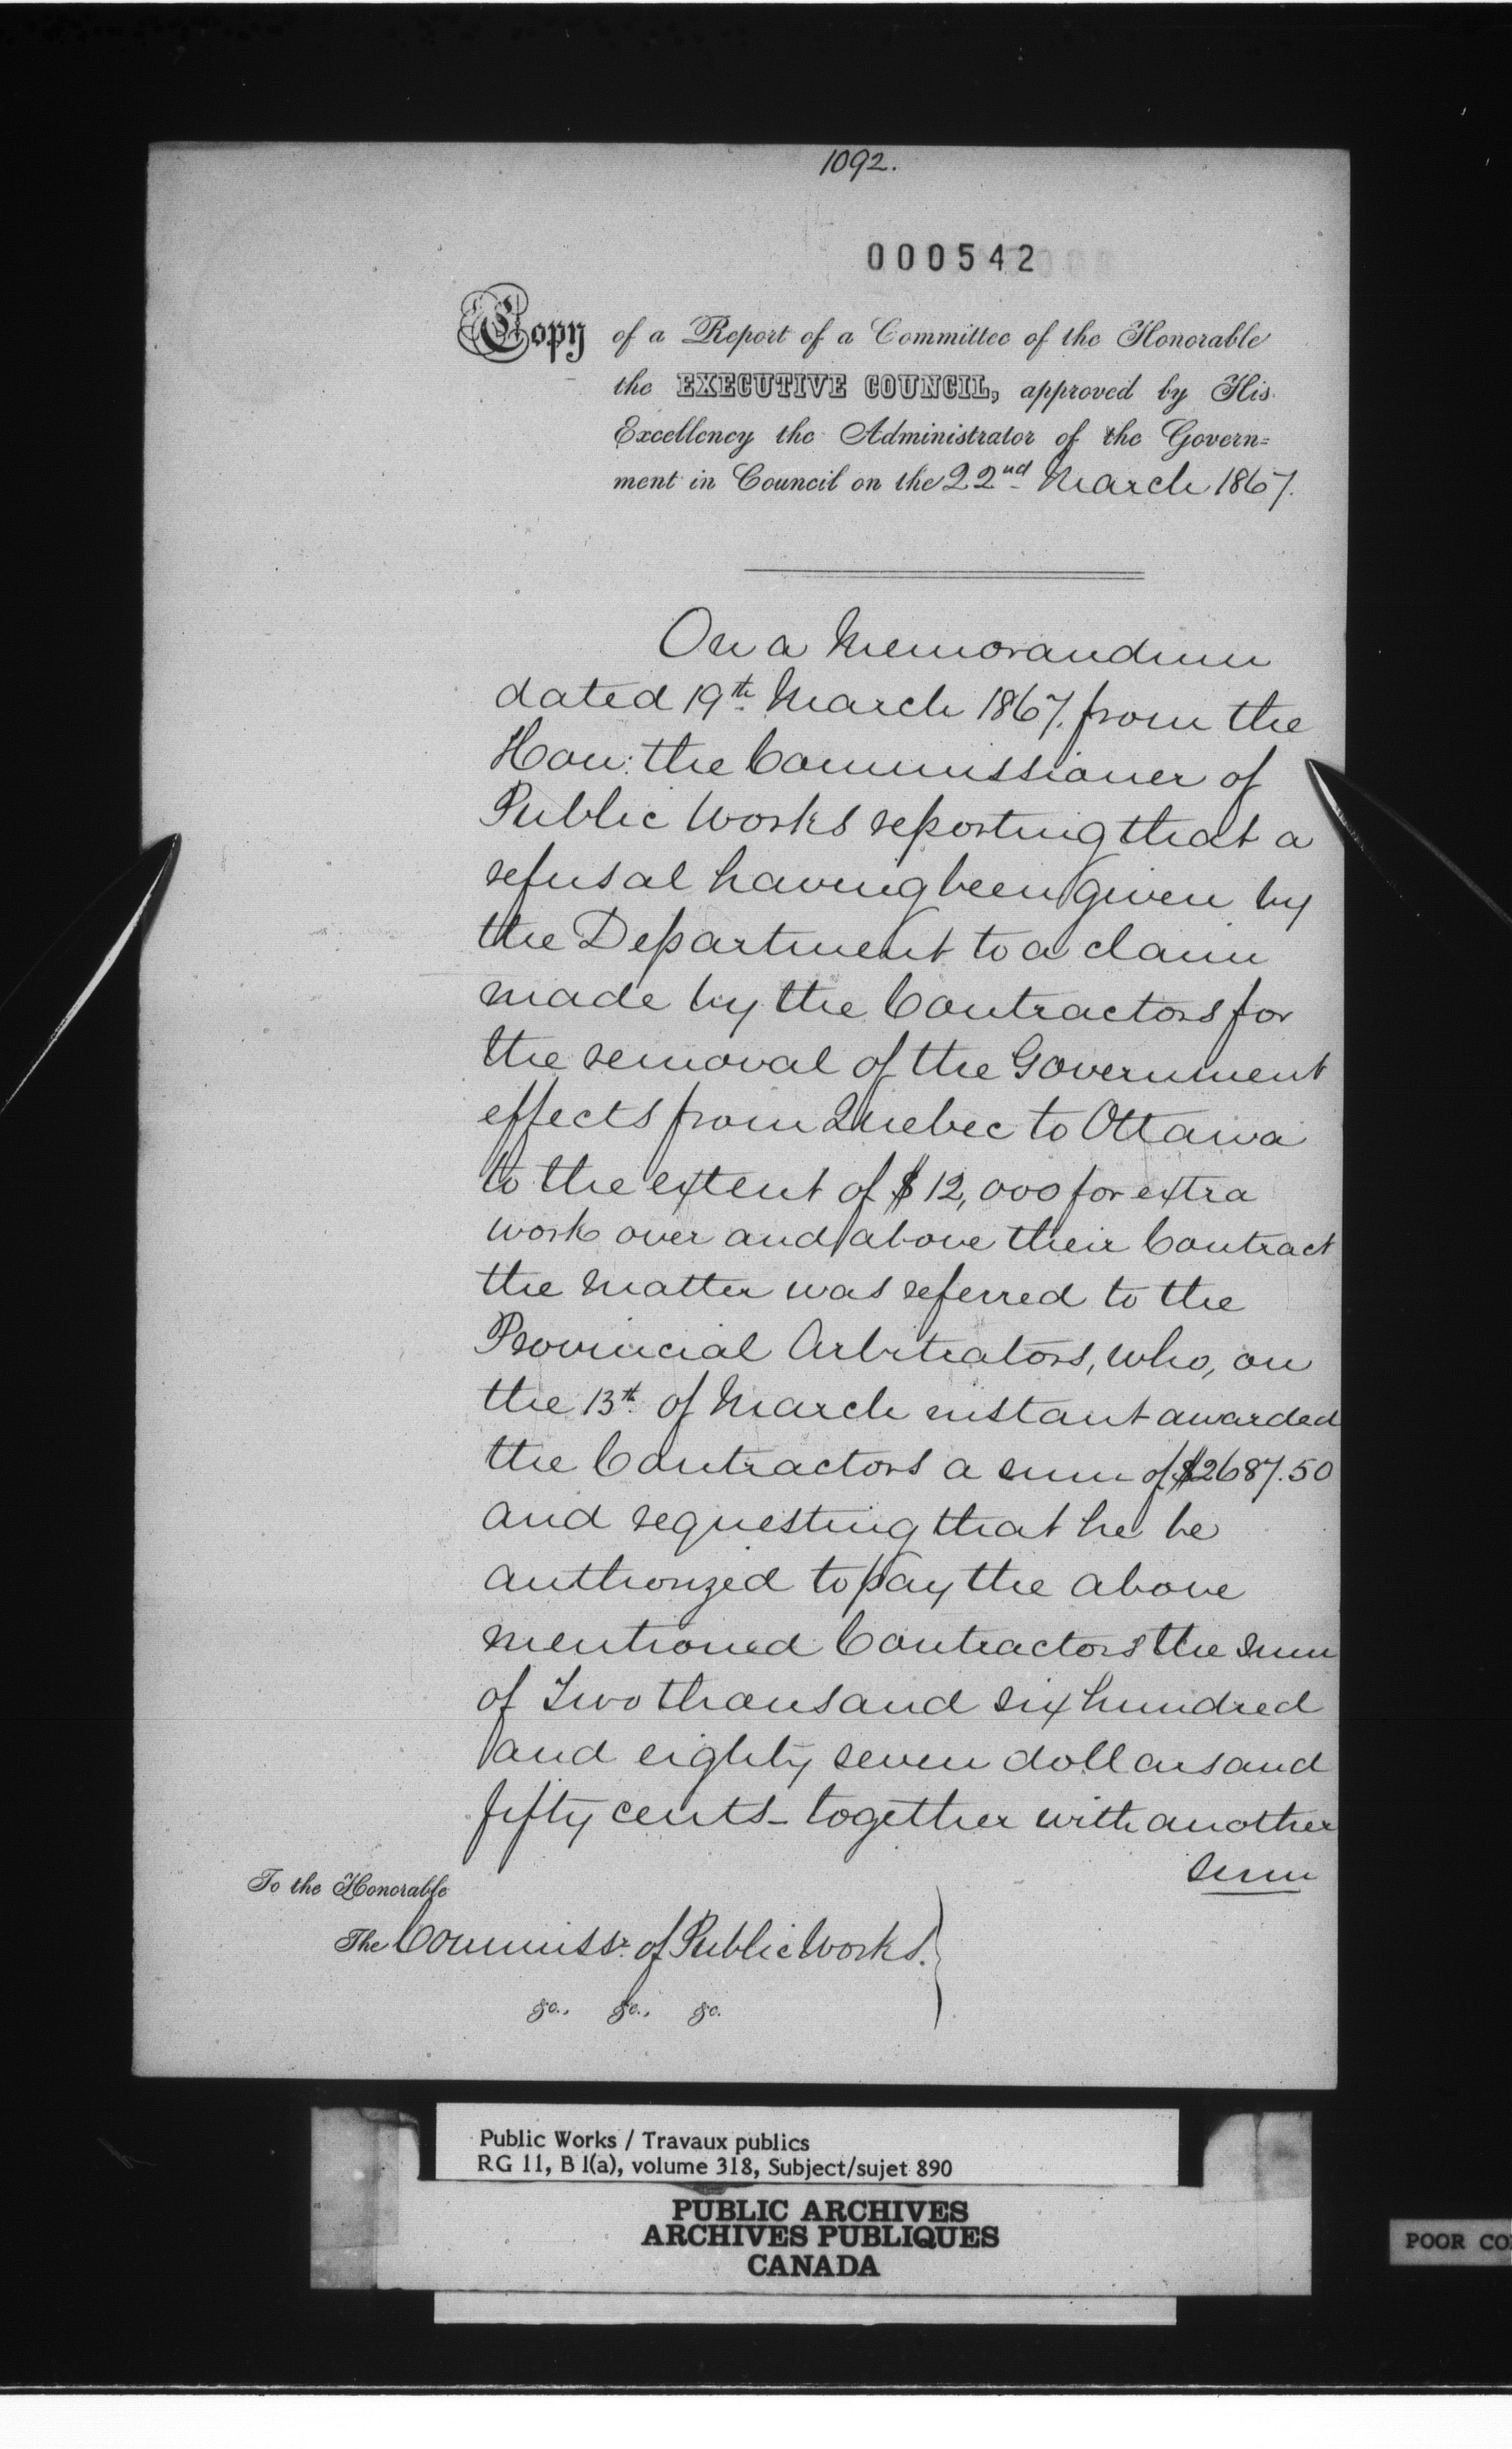 1092.
000542
Copy of a Report of a Committee of the Honorable
the EXECUTIVE COUNCIL, approved by His
Excellency the Administrator of the Govern=
ment in Council on the 22nd March 1867.
On a Memorandum
dated 19th March 1867. from the
Hon: the Commissioner of
Public Works reporting that a
refusal having been given by
the Department to a claim
made by the Contractors for
the removal of the Government
effects from Quebec to Ottawa
to the extent of $12,000 for extra
work over and above their Contract
the matter was referred to the
Provincial Arbitrators, who, on
the 13th of March instant awarded
the Contractors a sum of $2687.50
and requesting that he be
authorized to pay the above
mentioned Contractors the sum
of Two thousand six hundred
and eighty seven dollars and
fifty cents - together with another
sum
To the Honorable
The Commissr. of Public Works.
&c., &c., &c.
Public Works / Travaux publics
RG 11, B 1(a), volume 318, Subject/sujet 890
PUBLIC ARCHIVES
ARCHIVES PUBLIQUES
CANADA
POOR CO